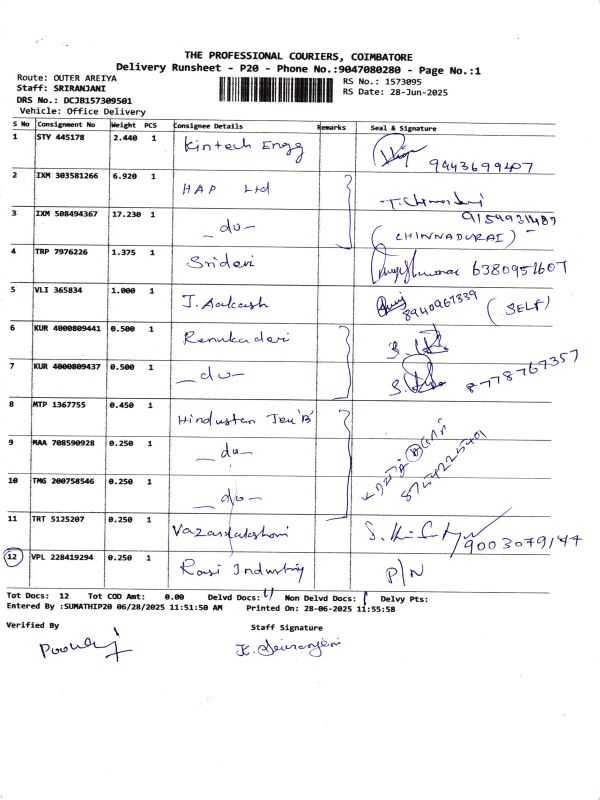 THE PROFESSIONAL COURIERS, COIMBATORE
Delivery Runsheet - P20 - Phone No.:9047080280 - Page No.:1
Route: OUTER AREIYA RS No.: 1573095
Staff: SRIRANJANI RS Date: 28-Jun-2025
DRS No.: DCJB157309501
Vehicle: Office Delivery
S No Consignment No Weight PCS Consignee Details Remarks Seal & Signature
1 STY 445178 2.440 1 Kintech Engg 9443699407
2 IXM 303581266 6.920 1 HAP Ltd
3 IXM 508494367 17.230 1 -do- 9159931489
(CHINNADURAI)
4 TRP 7976226 1.375 1 Sridevi 6380951607
5 VLI 365834 1.000 1 J. Aakash 8940967339 (SELF)
6 KUR 4000809441 0.500 1 Renuka devi
7 KUR 4000809437 0.500 1 -do- 8778767357
8 MTP 1367755 0.450 1 Hindustan
9 MAA 708590928 0.250 1 -do-
10 TMG 200758546 0.250 1 -do- 8754225401
11 TRT 5125207 0.250 1 9003079147
12 VPL 228419294 0.250 1 Rasi Industry P/N
Tot Docs: 12 Tot COD Amt: 0.00 Delvd Docs: 11 Non Delvd Docs: 1 Delvy Pts:
Entered By :SUMATHIP20 06/28/2025 11:51:50 AM Printed On: 28-06-2025 11:55:58
Verified By Staff Signature